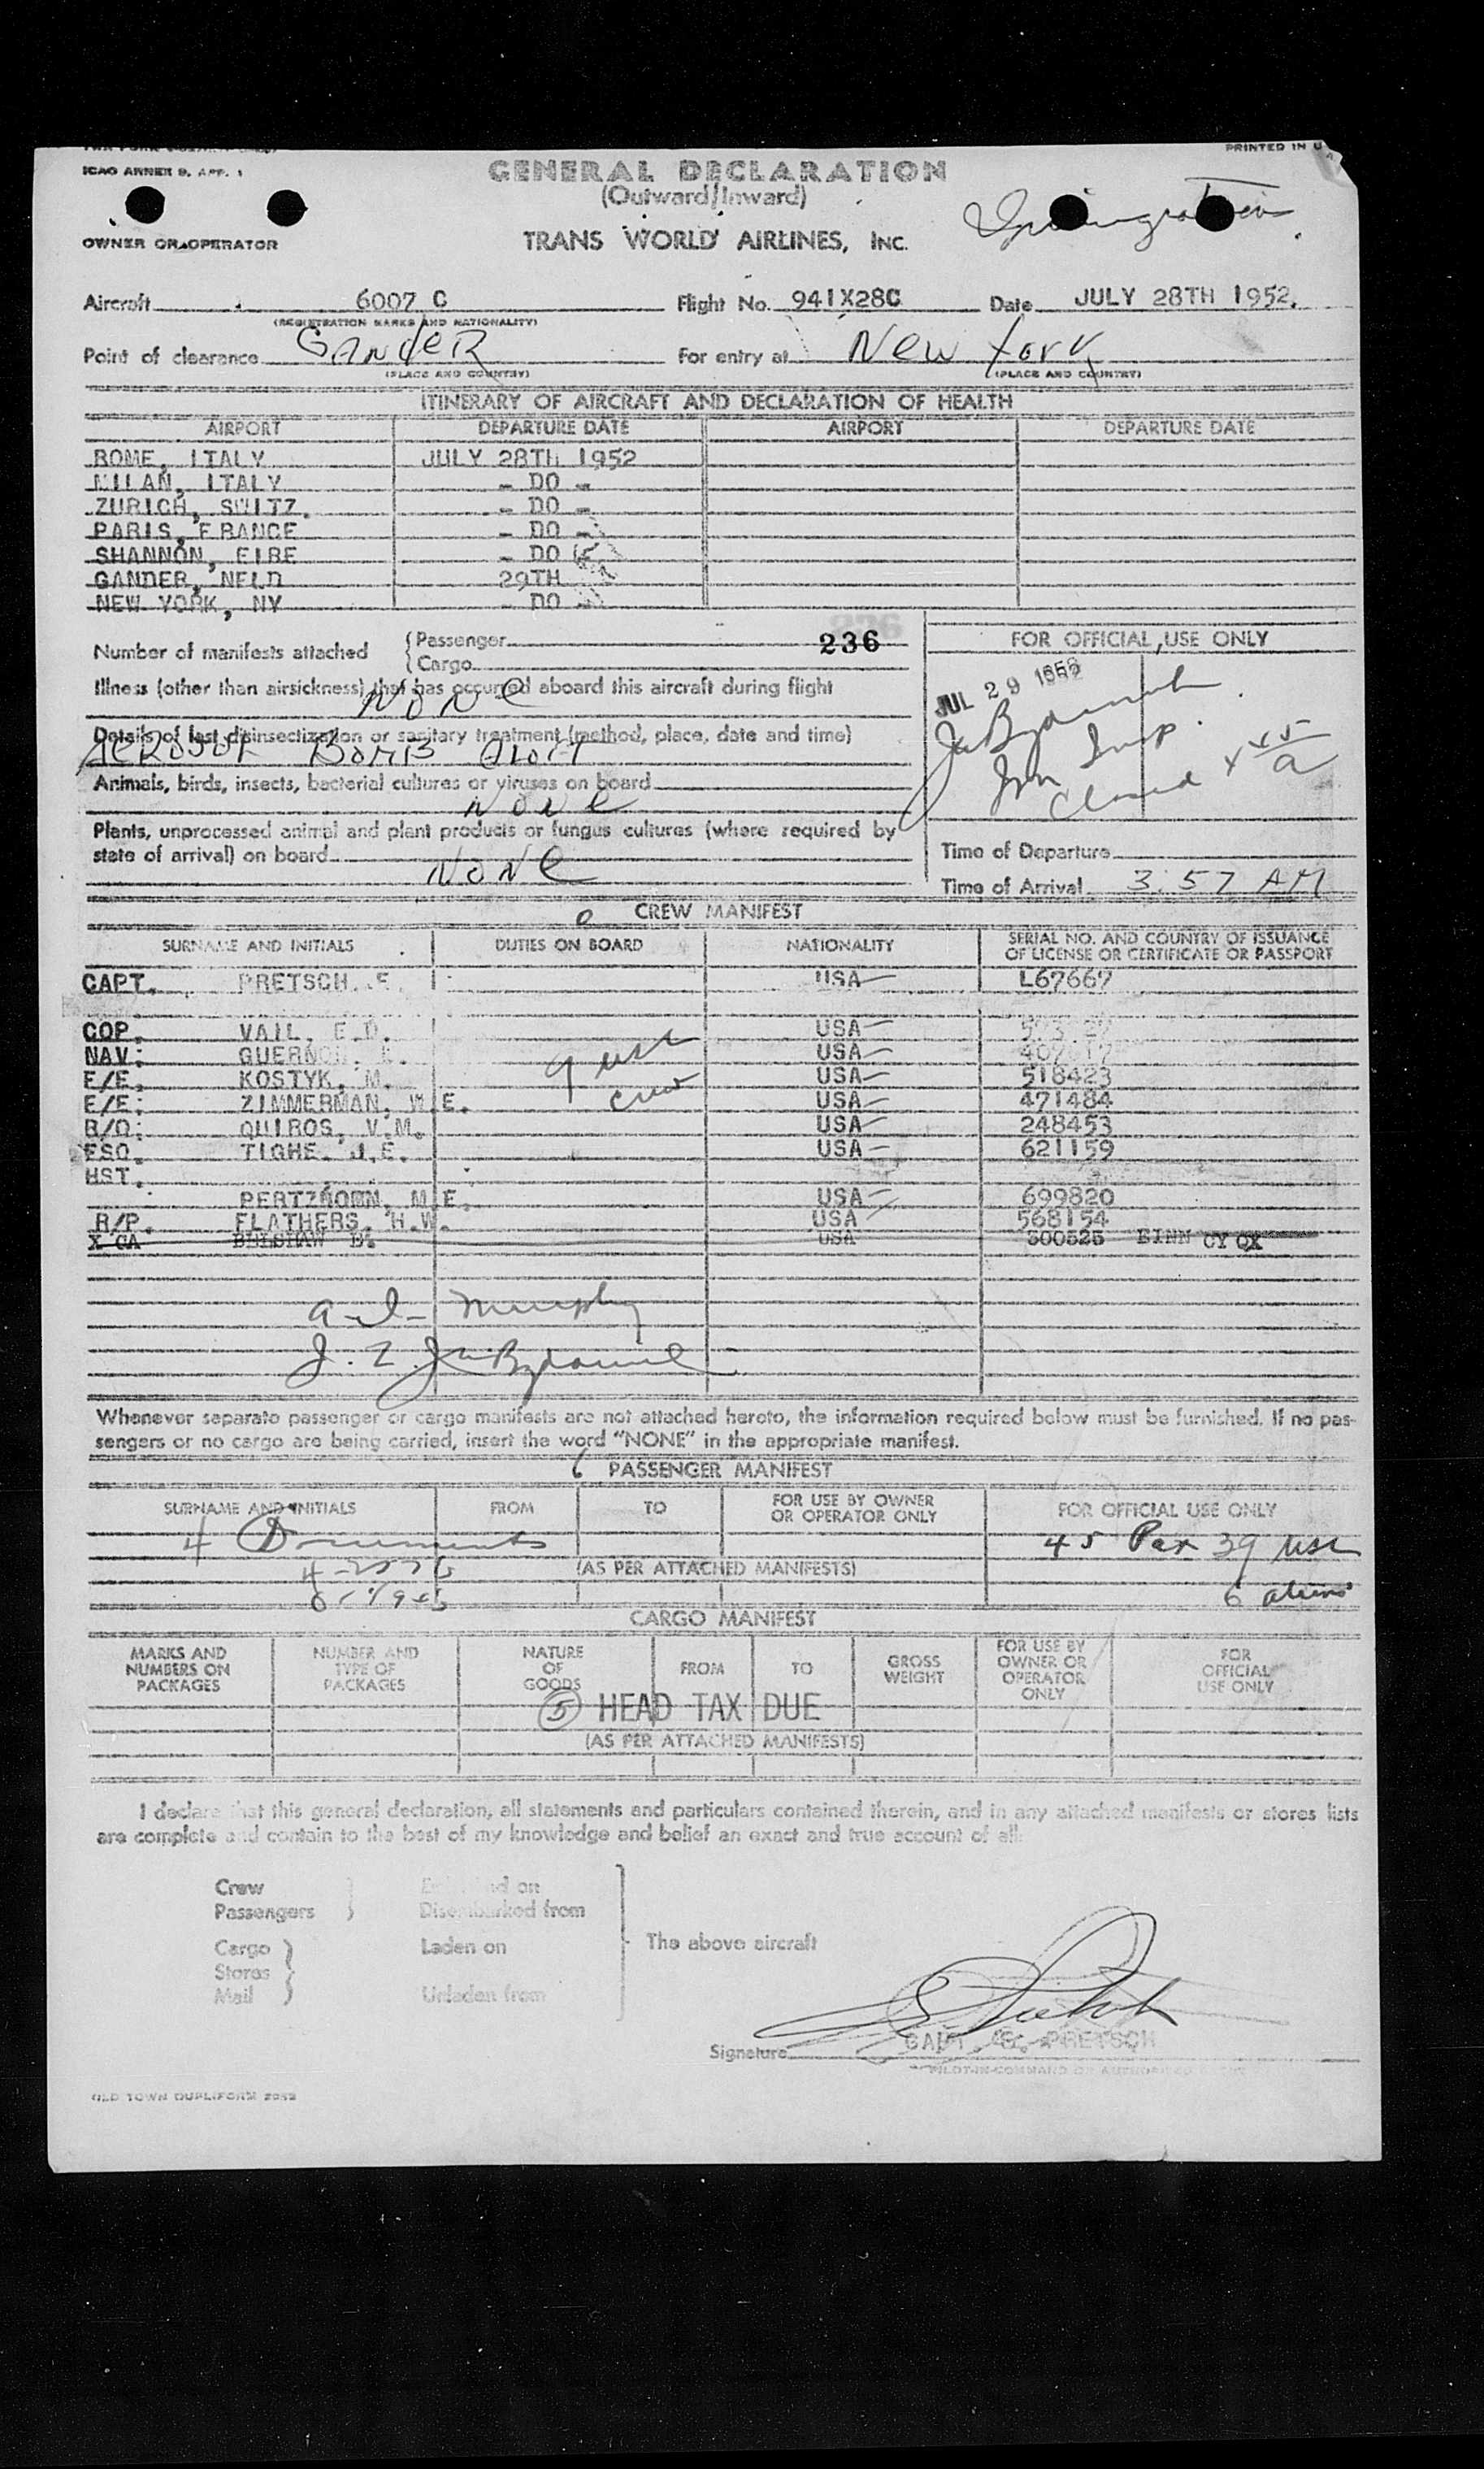 ICAO ANNEX 9, APP. 1
PRINTED IN U
GENERAL DECLARATION
(Outward/Inward)
Immigration
OWNER OR OPERATOR
TRANS WORLD AIRLINES, INC.
Aircraft 6007 C Flight No. 941X28C Date JULY 28TH 1952.
(REGISTRATION MARKS AND NATIONALITY)
Point of clearance GANdeR For entry at New York
(PLACE AND COUNTRY) (PLACE AND COUNTRY)
ITINERARY OF AIRCRAFT AND DECLARATION OF HEALTH
AIRPORT DEPARTURE DATE AIRPORT DEPARTURE DATE
ROME, ITALY JULY 28TH 1952
MILAN, ITALY - DO -
ZURICH, SWITZ. - DO -
PARIS, FRANCE - DO -
SHANNON, EIRE - DO -
GANDER, NFLD 29TH
NEW YORK, NY - DO -
Number of manifests attached { Passenger 236
{ Cargo
Illness (other than airsickness) that has occurred aboard this aircraft during flight
NONe
Details of last disinsectization or sanitary treatment (method, place, date and time)
AeROSOL BOMB
Animals, birds, insects, bacterial cultures or viruses on board
NONe
Plants, unprocessed animal and plant products or fungus cultures (where required by
state of arrival) on board NONe
FOR OFFICIAL USE ONLY
JUL 29 1952
Imm Insp.
Time of Departure
Time of Arrival 3:57 AM
CREW MANIFEST
SURNAME AND INITIALS DUTIES ON BOARD NATIONALITY SERIAL NO. AND COUNTRY OF ISSUANCE
OF LICENSE OR CERTIFICATE OR PASSPORT
CAPT. PRETSCH, E. USA L67667
COP. VAIL, E.D. USA
NAV: USA
F/E. KOSTYK, M. USA 518423
F/E: ZIMMERMAN, W.E. USA 471484
R/O: QUIROS, V.M. USA 248453
FSO. TIGHE, J.E. USA 621159
HST.
PERTZBORN, M.E. USA 699820
R/P. FLATHERS, H.W. USA 568154
X CA BELSHAW USA 300525 BINN CY QX
9 usc
crew
Murphy
Whenever separate passenger or cargo manifests are not attached hereto, the information required below must be furnished. If no pas-
sengers or no cargo are being carried, insert the word "NONE" in the appropriate manifest.
6 PASSENGER MANIFEST
SURNAME AND INITIALS FROM TO FOR USE BY OWNER
OR OPERATOR ONLY FOR OFFICIAL USE ONLY
4 Documents 45 Pax 39 usc
(AS PER ATTACHED MANIFESTS)
6 aliens
CARGO MANIFEST
MARKS AND
NUMBERS ON
PACKAGES NUMBER AND
TYPE OF
PACKAGES NATURE
OF
GOODS FROM TO GROSS
WEIGHT FOR USE BY
OWNER OR
OPERATOR
ONLY FOR
OFFICIAL
USE ONLY
5 HEAD TAX DUE
(AS PER ATTACHED MANIFESTS)
I declare that this general declaration, all statements and particulars contained therein, and in any attached manifests or stores lists
are complete and contain to the best of my knowledge and belief an exact and true account of all:
Crew
Passengers } Embarked on
Disembarked from
Cargo
Stores
Mail } Laden on
Unladen from
The above aircraft
Signature CAPT. E. PRETSCH
PILOT-IN-COMMAND OR AUTHORIZED
OLD TOWN DUPLIFORM